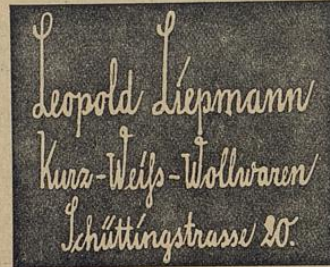 Leopold Liepmann
Kurz-Weiß-Wollwaren
Schüttingstrasse 20.